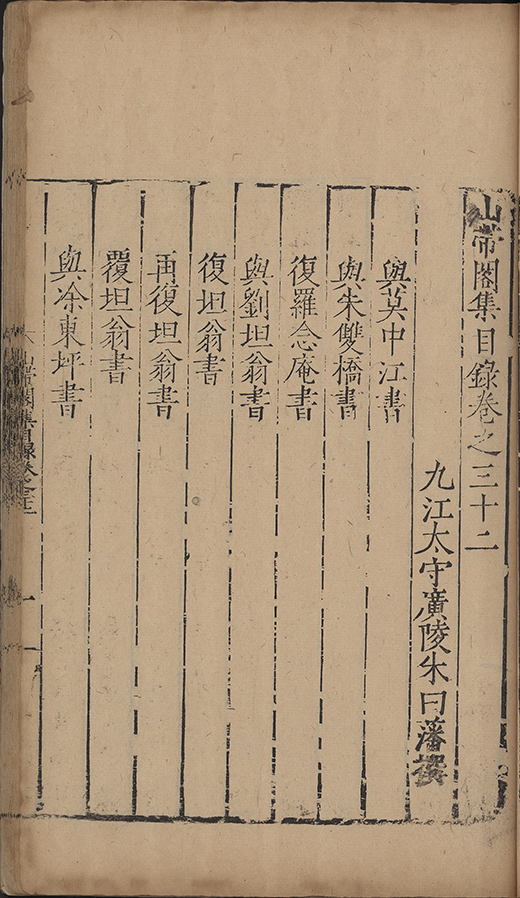 山帶閣集目錄卷之三十二
九江太守廣陵朱曰藩撰
與莫中江書
與朱雙橋書
復羅念庵書
與劉坦翁書
復坦翁書
再復坦翁書
覆坦翁書
與凃東坪書
山帶閣集目錄卷之三十二
一